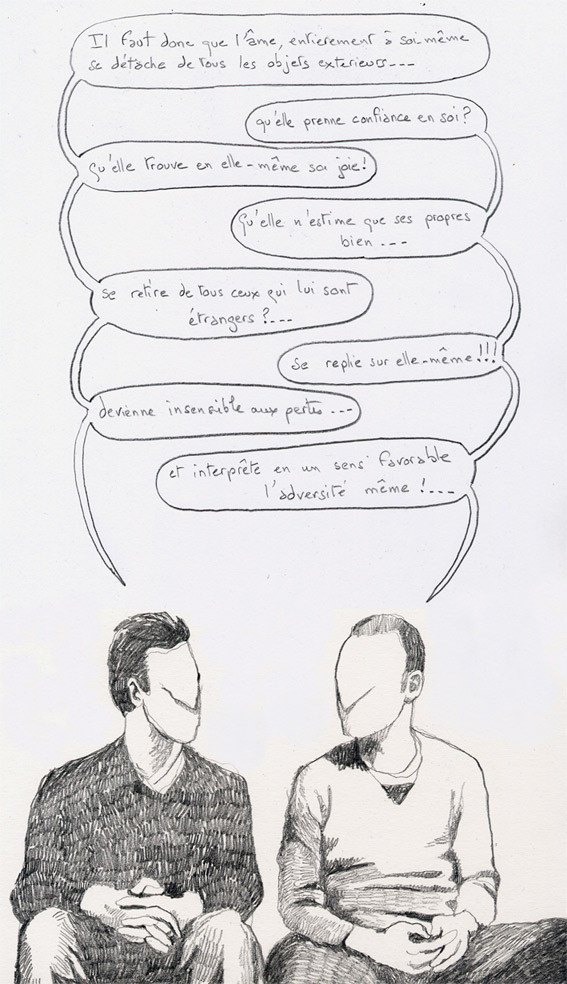 Il faut donc que l'âme, entierement à soi-même
se détache de tous les objets exterieurs---
qu'elle prenne confiance en soi?
Qu'elle trouve en elle-même sa joie!
Qu'elle n'estime que ses propres
bien ---
se retire de tous ceux qui lui sont
étrangers ?---
se replie sur elle-même !!!
devienne insensible aux pertes ---
et interprête en un sens favorable
l'adversité même !---